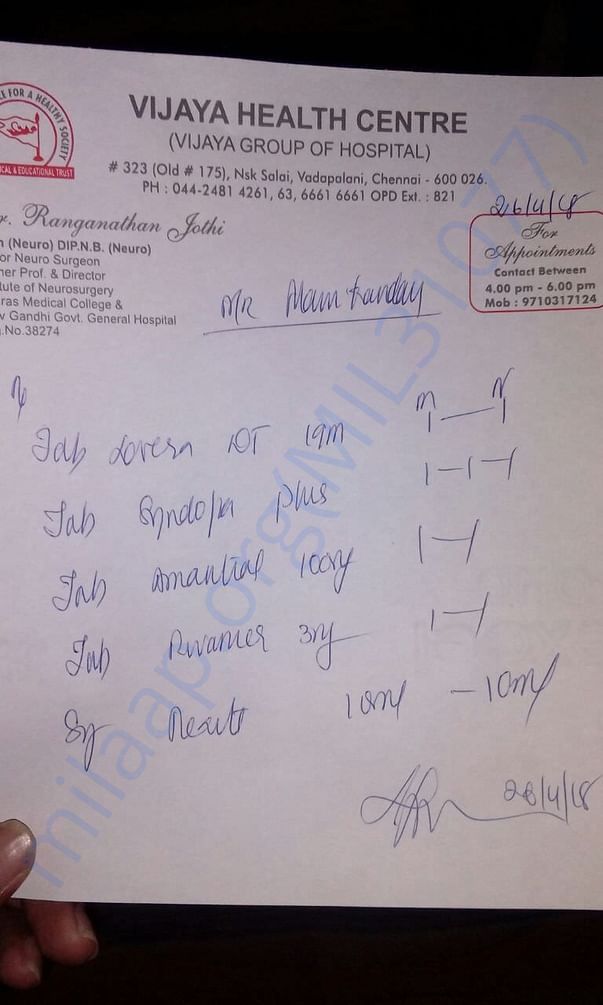 E FOR A HEALTHY SOCIETY
ICAL & EDUCATIONAL TRUST
VIJAYA HEALTH CENTRE
(VIJAYA GROUP OF HOSPITAL)
# 323 (Old # 175), Nsk Salai, Vadapalani, Chennai - 600 026.
PH : 044-2481 4261, 63, 6661 6661 OPD Ext. : 821
26/4/18
r. Ranganathan Jothi
(Neuro) DIP.N.B. (Neuro)
or Neuro Surgeon
er Prof. & Director
tute of Neurosurgery
ras Medical College &
v Gandhi Govt. General Hospital
.No.38274
For
Appointments
Contact Between
4.00 pm - 6.00 pm
Mob : 9710317124
Mr
M N
Tab DT 1 - 1
Tab Syndopa plus 1-1-1
Tab 100mg 1-1
Tab 3mg 1-1
Sy 10ml - 10ml
26/4/18
milaap.org(MIL31077)